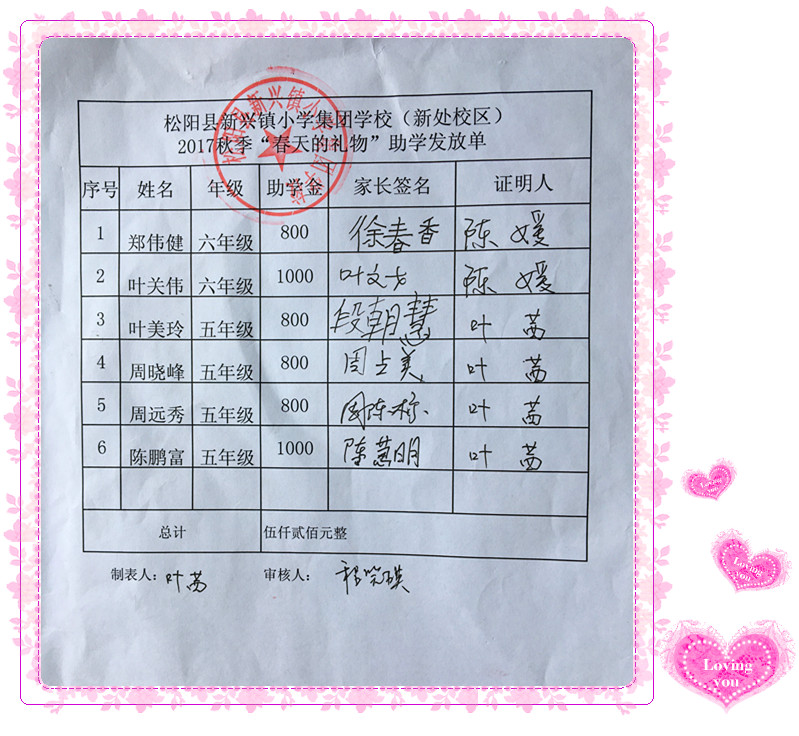 松阳县新兴镇小学集团学校（新处校区）
2017秋季“春天的礼物”助学发放单
序号 姓名 年级 助学金 家长签名 证明人
1 郑伟健 六年级 800 徐春香 陈媛
2 叶关伟 六年级 1000 叶文大 陈媛
3 叶美玲 五年级 800 段朝慧 叶茜
4 周晓峰 五年级 800 周占美 叶茜
5 周远秀 五年级 800 周陈标 叶茜
6 陈鹏富 五年级 1000 陈慧明 叶茜
总计 伍仟贰佰元整
制表人：叶茜 审核人：
Loving
you
Loving
you
Loving
you